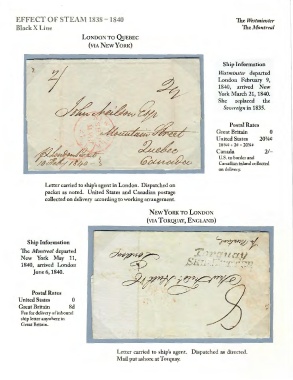 EFFECT OF STEAM 1838 – 1840
Black X Line
The Westminster
The Montreal
LONDON TO QUEBEC
(VIA NEW YORK)
2/
2/9
John Neilson Esq
Mountain Street
Quebec
Canada
Ship Information
Westminster departed
London February 9,
1840, arrived New
York March 21, 1840.
She replaced the
Sovereign in 1835.
Postal Rates
Great Britain 0
United States 20¾¢
Canada 2/-
U.S. to border and
Canadian inland collected
on delivery.
Letter carried to ship's agent in London. Dispatched on
packet as noted. United States and Canadian postage
collected on delivery according to working arrangement.
NEW YORK TO LONDON
(VIA TORQUAY, ENGLAND)
Ship Information
The Montreal departed
New York May 11,
1840, arrived London
June 6, 1840.
Postal Rates
United States 0
Great Britain 8d
Fee for delivery of inbound
ship letter anywhere in
Great Britain.
Torquay
Ship Letter
8
Letter carried to ship's agent. Dispatched as directed.
Mail put ashore at Torquay.